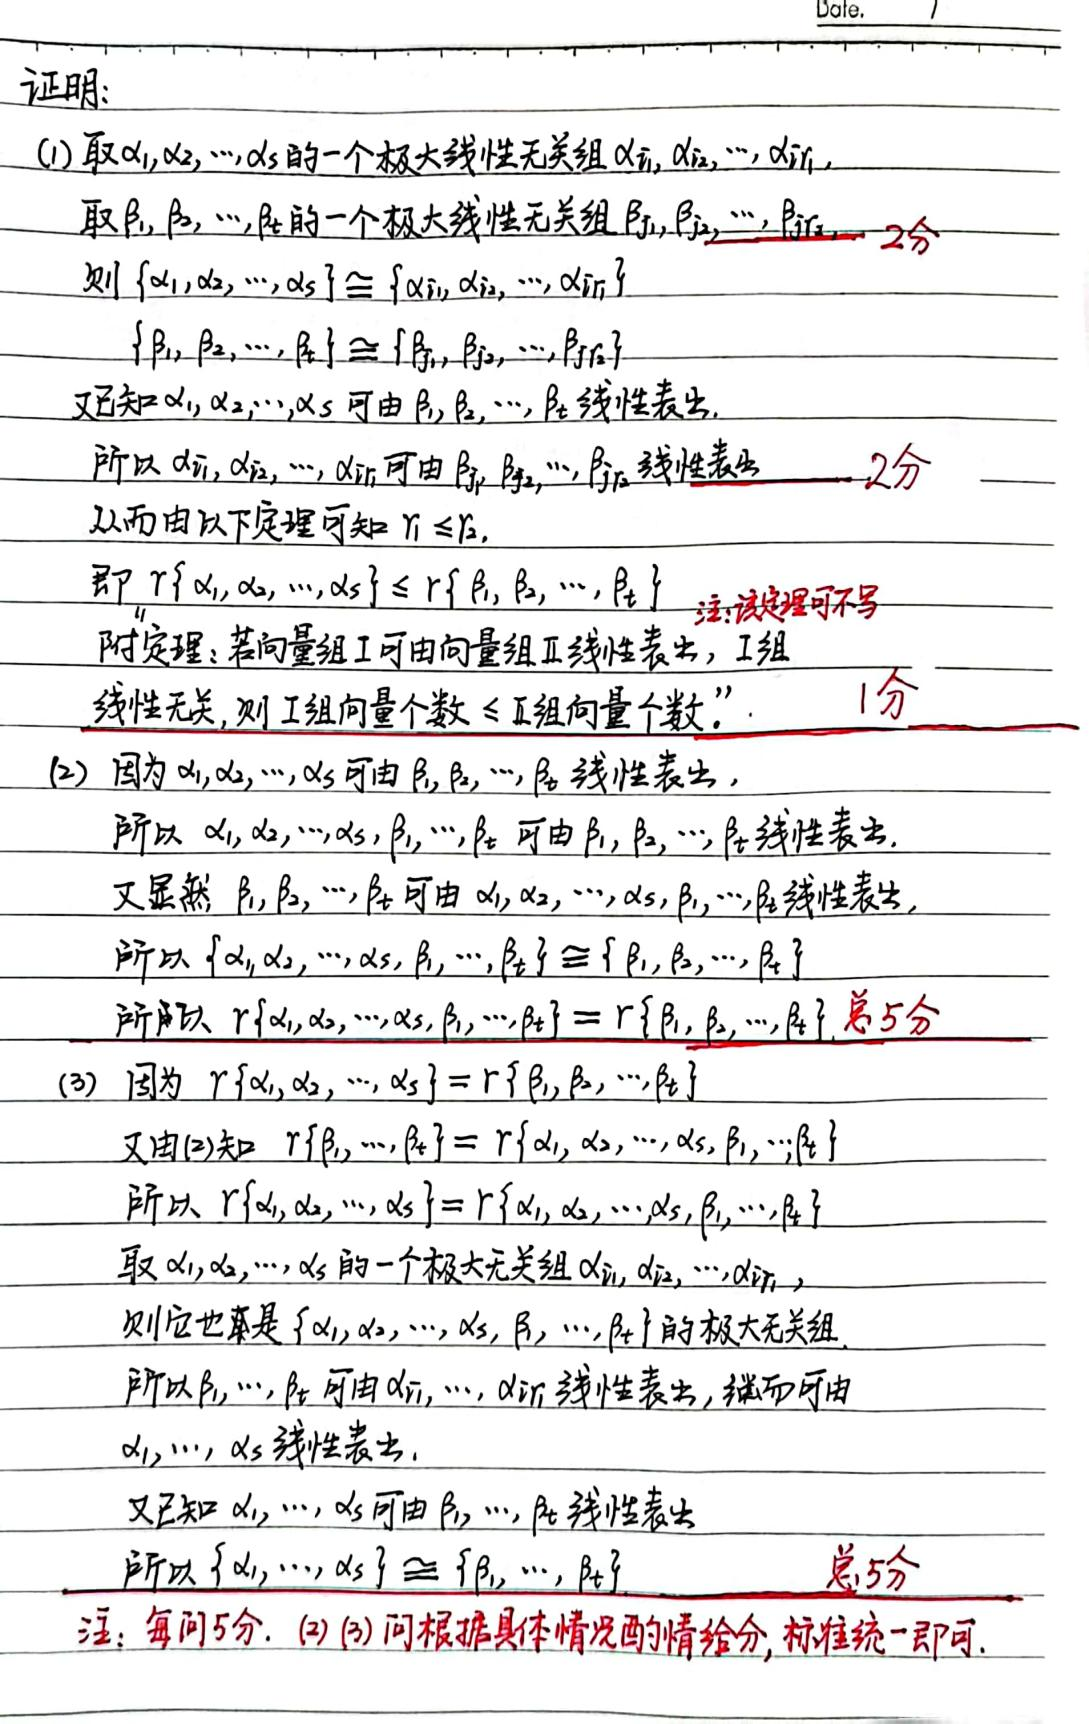 Date. /
证明:
(1) 取α₁,α₂,…,αs的一个极大线性无关组αi₁,αi₂,…,αir₁,
取β₁,β₂,…,βt的一个极大线性无关组βj₁,βj₂,…,βjr₂, 2分
则{α₁,α₂,…,αs}≅{αi₁,αi₂,…,αir₁}
{β₁,β₂,…,βt}≅{βj₁,βj₂,…,βjr₂}
又已知α₁,α₂,…,αs可由β₁,β₂,…,βt线性表出.
所以αi₁,αi₂,…,αir₁可由βj₁,βj₂,…,βjr₂线性表出 2分
从而由以下定理可知r₁≤r₂.
即r{α₁,α₂,…,αs}≤r{β₁,β₂,…,βt} 注:该定理可不写
附"定理:若向量组I可由向量组II线性表出, I组
线性无关,则I组向量个数≤II组向量个数." 1分
(2) 因为α₁,α₂,…,αs可由β₁,β₂,…,βt线性表出,
所以α₁,α₂,…,αs,β₁,…,βt可由β₁,β₂,…,βt线性表出.
又显然β₁,β₂,…,βt可由α₁,α₂,…,αs,β₁,…,βt线性表出,
所以{α₁,α₂,…,αs,β₁,…,βt}≅{β₁,β₂,…,βt}
所以r{α₁,α₂,…,αs,β₁,…,βt}=r{β₁,β₂,…,βt}. 总5分
(3) 因为r{α₁,α₂,…,αs}=r{β₁,β₂,…,βt}
又由(2)知r{β₁,…,βt}=r{α₁,α₂,…,αs,β₁,…,βt}
所以r{α₁,α₂,…,αs}=r{α₁,α₂,…,αs,β₁,…,βt}
取α₁,α₂,…,αs的一个极大无关组αi₁,αi₂,…,αir₁,
则它也是{α₁,α₂,…,αs,β₁,…,βt}的极大无关组.
所以β₁,…,βt可由αi₁,…,αir₁线性表出,继而可由
α₁,…,αs线性表出.
又已知α₁,…,αs可由β₁,…,βt线性表出
所以{α₁,…,αs}≅{β₁,…,βt}. 总5分
注:每问5分.(2)(3)问根据具体情况酌情给分,标准统一即可.